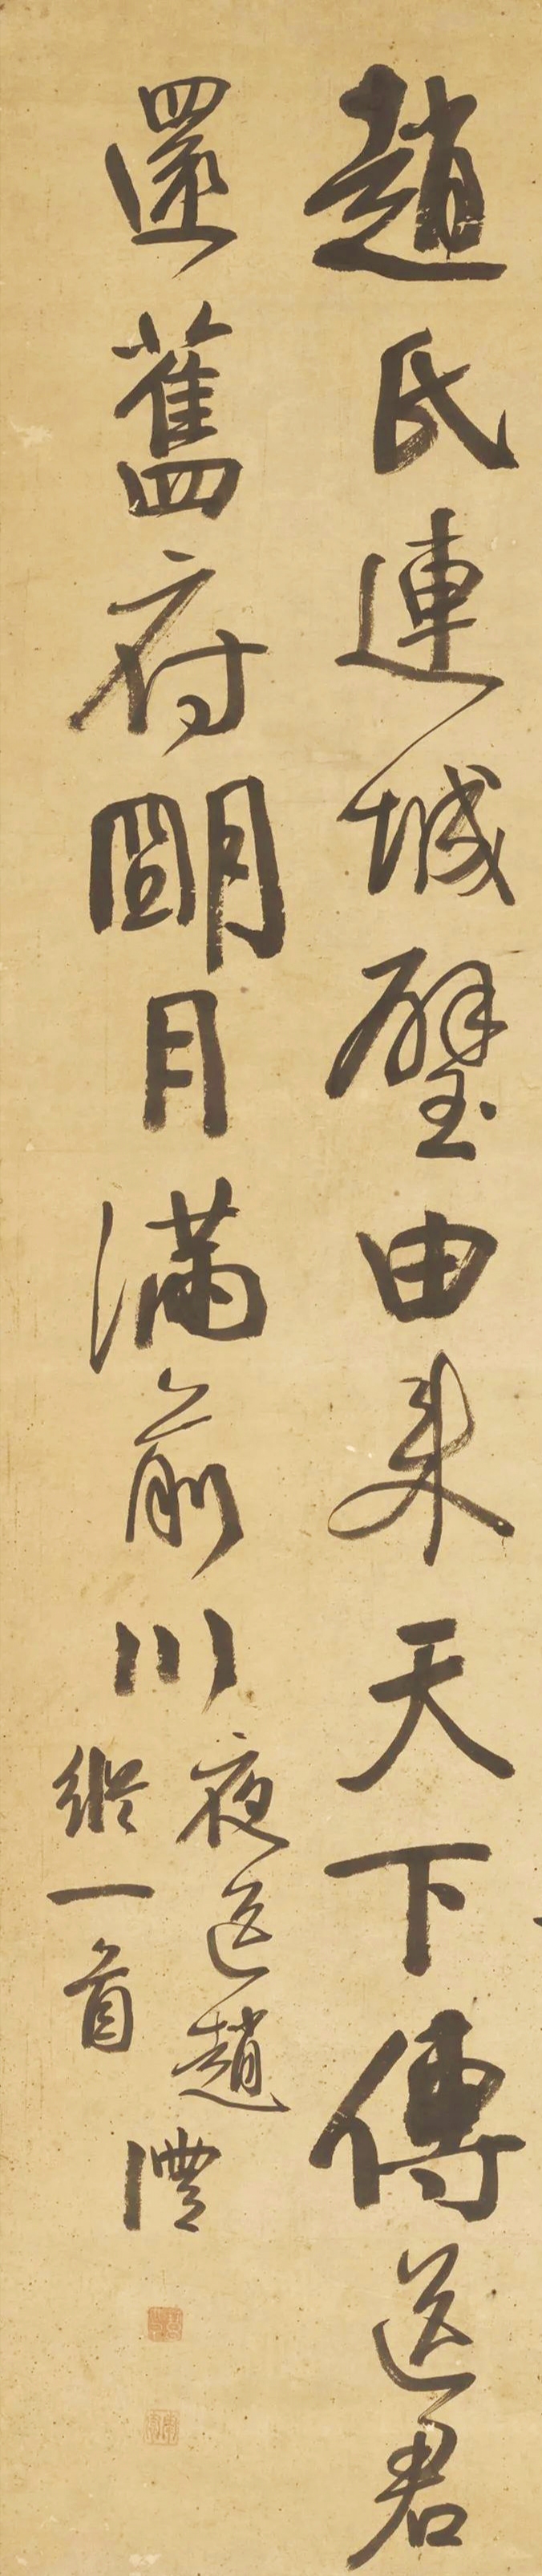 趙氏連城璧由來天下傳送君
還舊府朙月滿前川
夜送趙
縱一首
澧